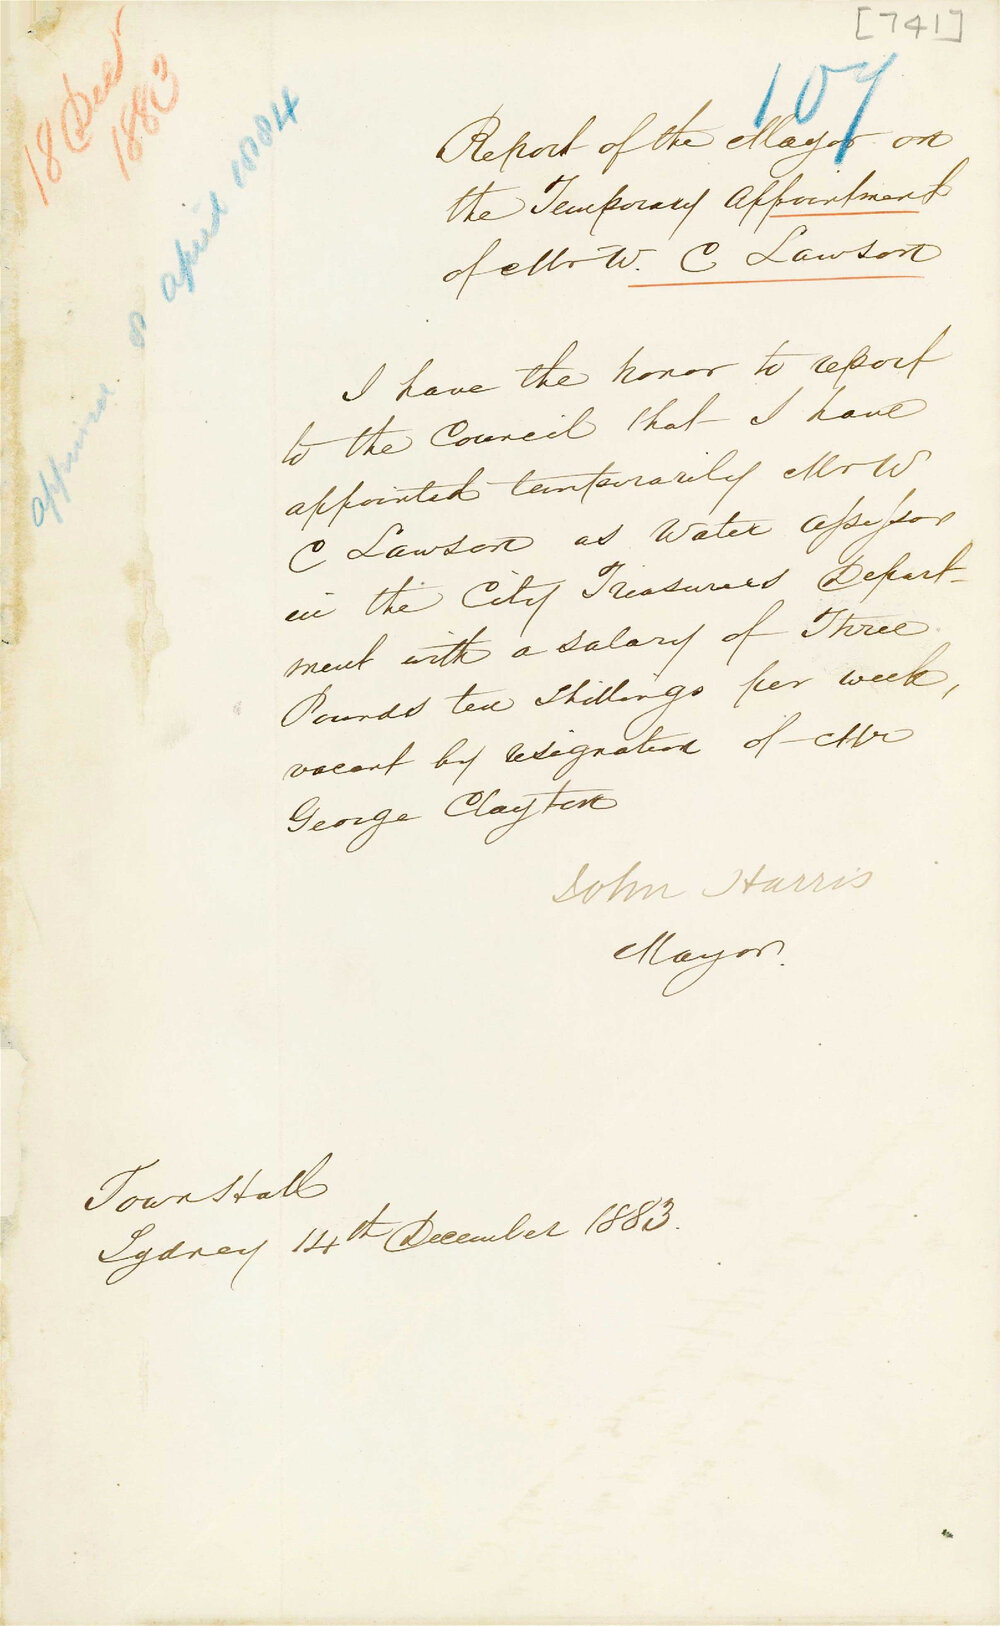 [741]
107
18 Decr
1883
approved 8 april 1884
Report of the Mayor on
the Temporary Appointment
of Mr W. C Lawson
I have the honor to report
to the Council that I have
appointed temporarily Mr W
C Lawson as Water Assessor
in the City Treasurers Depart-
ment with a salary of Three
Pounds ten shillings per week,
vacant by resignation of Mr
George Clayton
John Harris
Mayor.
Town Hall
Sydney 14th December 1883.